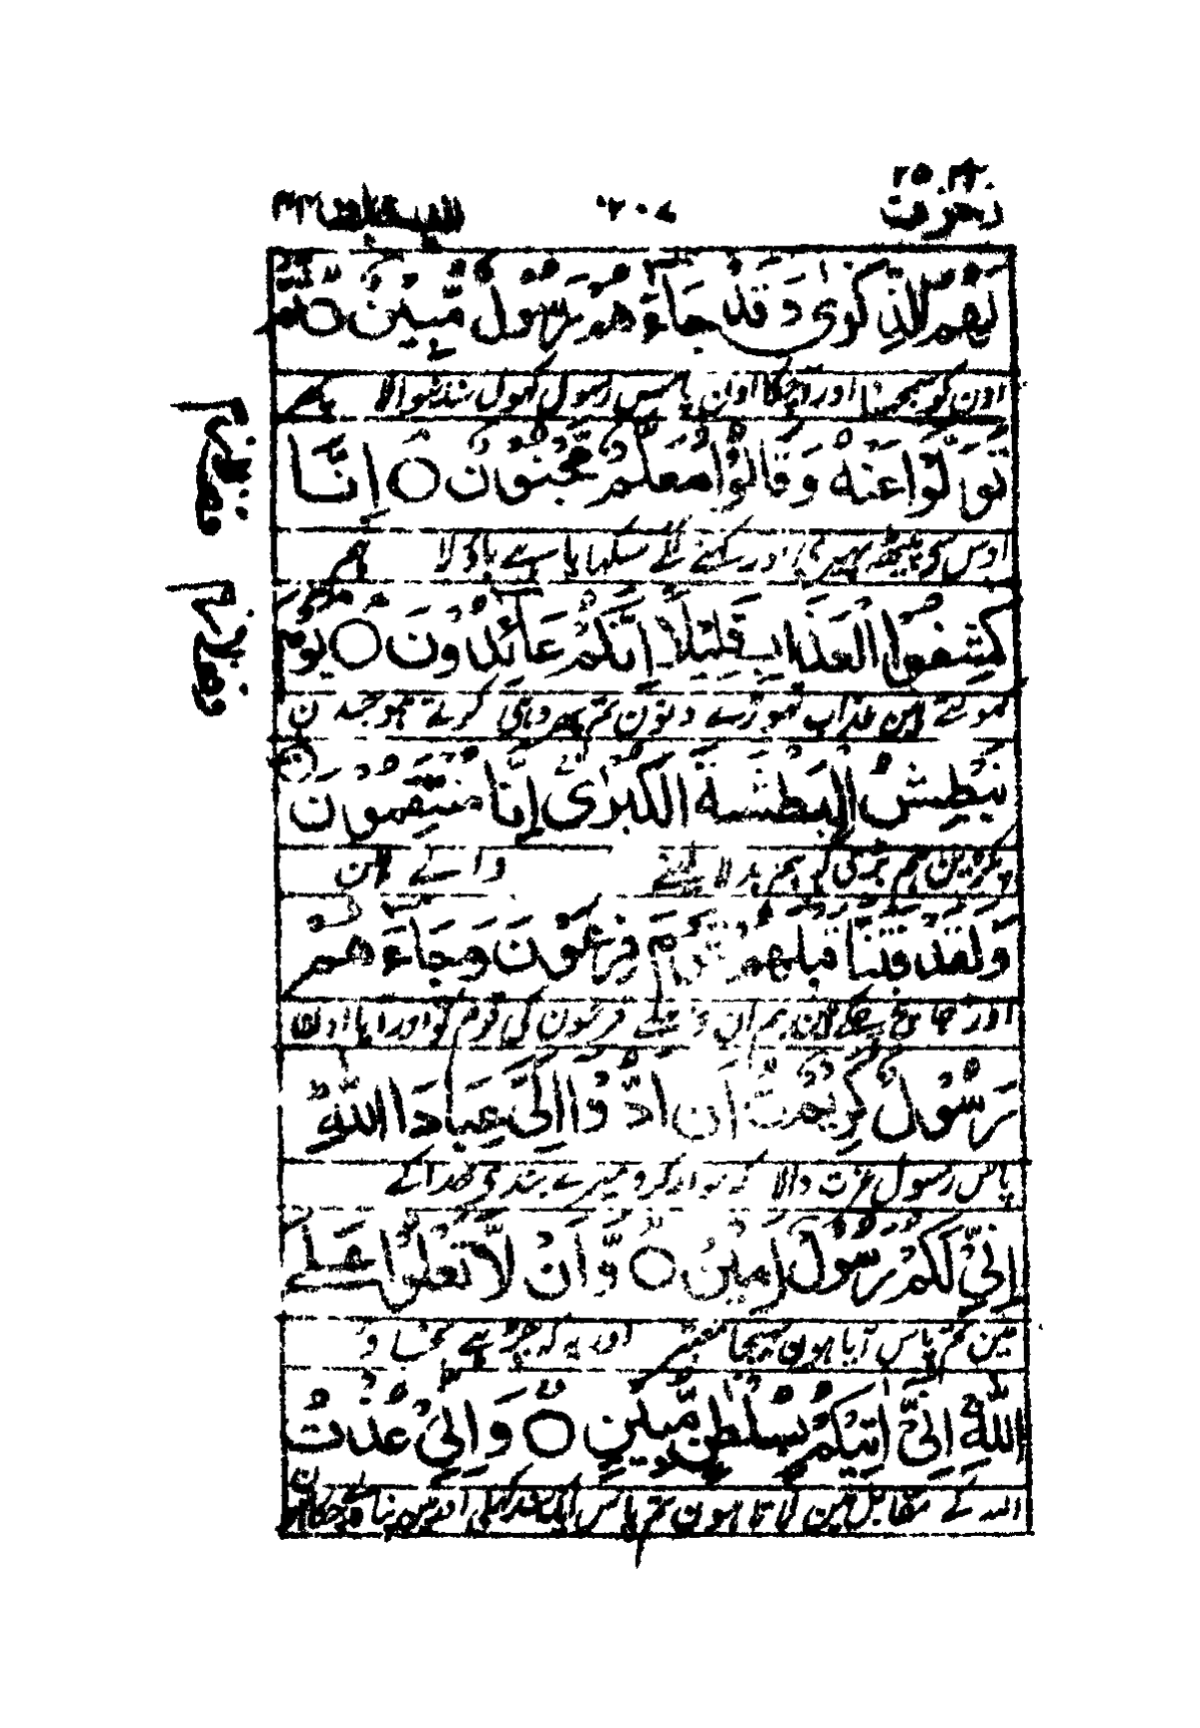 لَهُمُ الذِّكْرٰى وَقَدْ جَآءَهُمْ رَسُوْلٌ مُّبِيْنٌ ○ ثُمَّ
اون کو سمجھنا اور آچکا اون پاس رسول کھول سنانیوالا پھر
تَوَلَّوْا عَنْهُ وَقَالُوْا مُعَلَّمٌ مَّجْنُوْنٌ ○ اِنَّا
اوس سے پیٹھ پھیری اور کہنے لگے سکھایا ہے باولا ہم
كَاشِفُوا الْعَذَابِ قَلِيْلًا اِنَّكُمْ عَآئِدُوْنَ ○ يَوْمَ
کھولتے ہین عذاب تھوڑے دنون تم پھر وہی کرتے ہو جسدن
نَبْطِشُ الْبَطْشَةَ الْكُبْرٰى اِنَّا مُنْتَقِمُوْنَ
پکڑین ہم بڑی پکڑ ہم بدلا لینے والے ہین
وَلَقَدْ فَتَنَّا قَبْلَهُمْ قَوْمَ فِرْعَوْنَ وَجَآءَهُمْ
اور جانچ چکے ہین ہم ان سے پہلے فرعون کی قوم کو اور آیا اون
رَسُوْلٌ كَرِيْمٌ اَنْ اَدُّوْا اِلَىَّ عِبَادَ اللّٰهِ
پاس رسول عزت والا کہ حوالہ کرو میرے بندے خدا کے
اِنِّىْ لَكُمْ رَسُوْلٌ اَمِيْنٌ ○ وَّاَنْ لَّا تَعْلُوْا عَلَى
مین تم پاس آیا ہون بھیجا معتبر اور یہ کہ چڑھے نجاو
اللّٰهِ اِنِّىْ اٰتِيْكُمْ بِسُلْطٰنٍ مُّبِيْنٍ ○ وَاِنِّىْ عُذْتُ
اللہ کے مقابل مین لاتا ہون تم پاس ایک سند کھلی اور مین پناہ لے چکا ہون